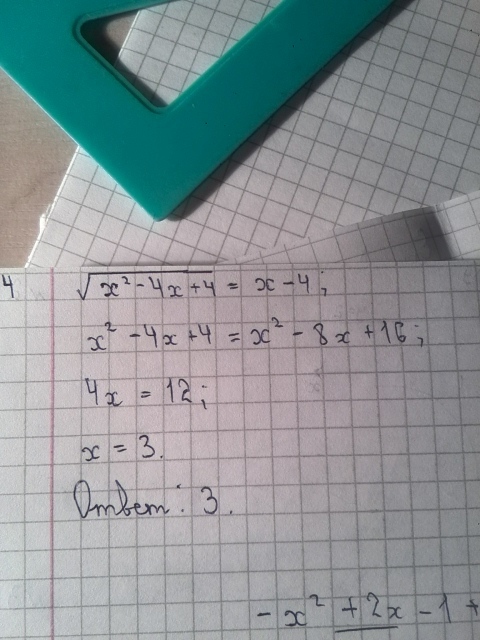 4 √x² - 4x + 4 = x - 4;
x² - 4x + 4 = x² - 8x + 16;
4x = 12;
x = 3.
Ответ: 3.
- x² + 2x - 1 +